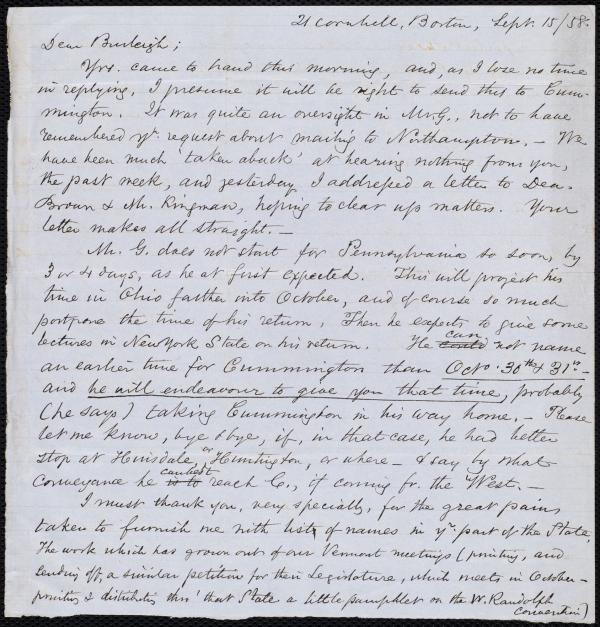 21 Cornhill, Boston, Sept. 15/58.
Dear Burleigh;
Yrs. came to hand this morning, and, as I lose no time
in replying, I presume it will be right to send this to Cum-
mington. It was quite an oversight in Mr G., not to have
remembered yr. request about mailing to Northampton. – We
have been much 'taken aback' at hearing nothing from you,
the past week, and yesterday I addressed a letter to Dea.
Brown & Mr. Kingman, hoping to clear up matters. Your
letter makes all straight. –
Mr. G. does not start for Pennsylvania so soon, by
3 or 4 days, as he at first expected. This will project his
time in Ohio farther into October, and of course so much
postpone the time of his return. Then he expects to give some
lectures in New York State on his return. He can could not name
an earlier time for Cummington than Octo. 30th & 31st –
and he will endeavour to give you that time, probably
(he says) taking Cummington in his way home. – Please
let me know, bye & bye, if, in that case, he had better
stop at Hinsdale, or Huntington, or where – & say by what
conveyance he can best is to reach C., if coming fr. the West. –
I must thank you, very specially, for the great pains
taken to furnish me with lists of names in yr. part of the State.
The work which has grown out of our Vermont meetings (printing, and
sending off, a similar petition for their Legislature, which meets in October –
printing & distributing thro' that State a little pamphlet on the W. Randolph
Convention)